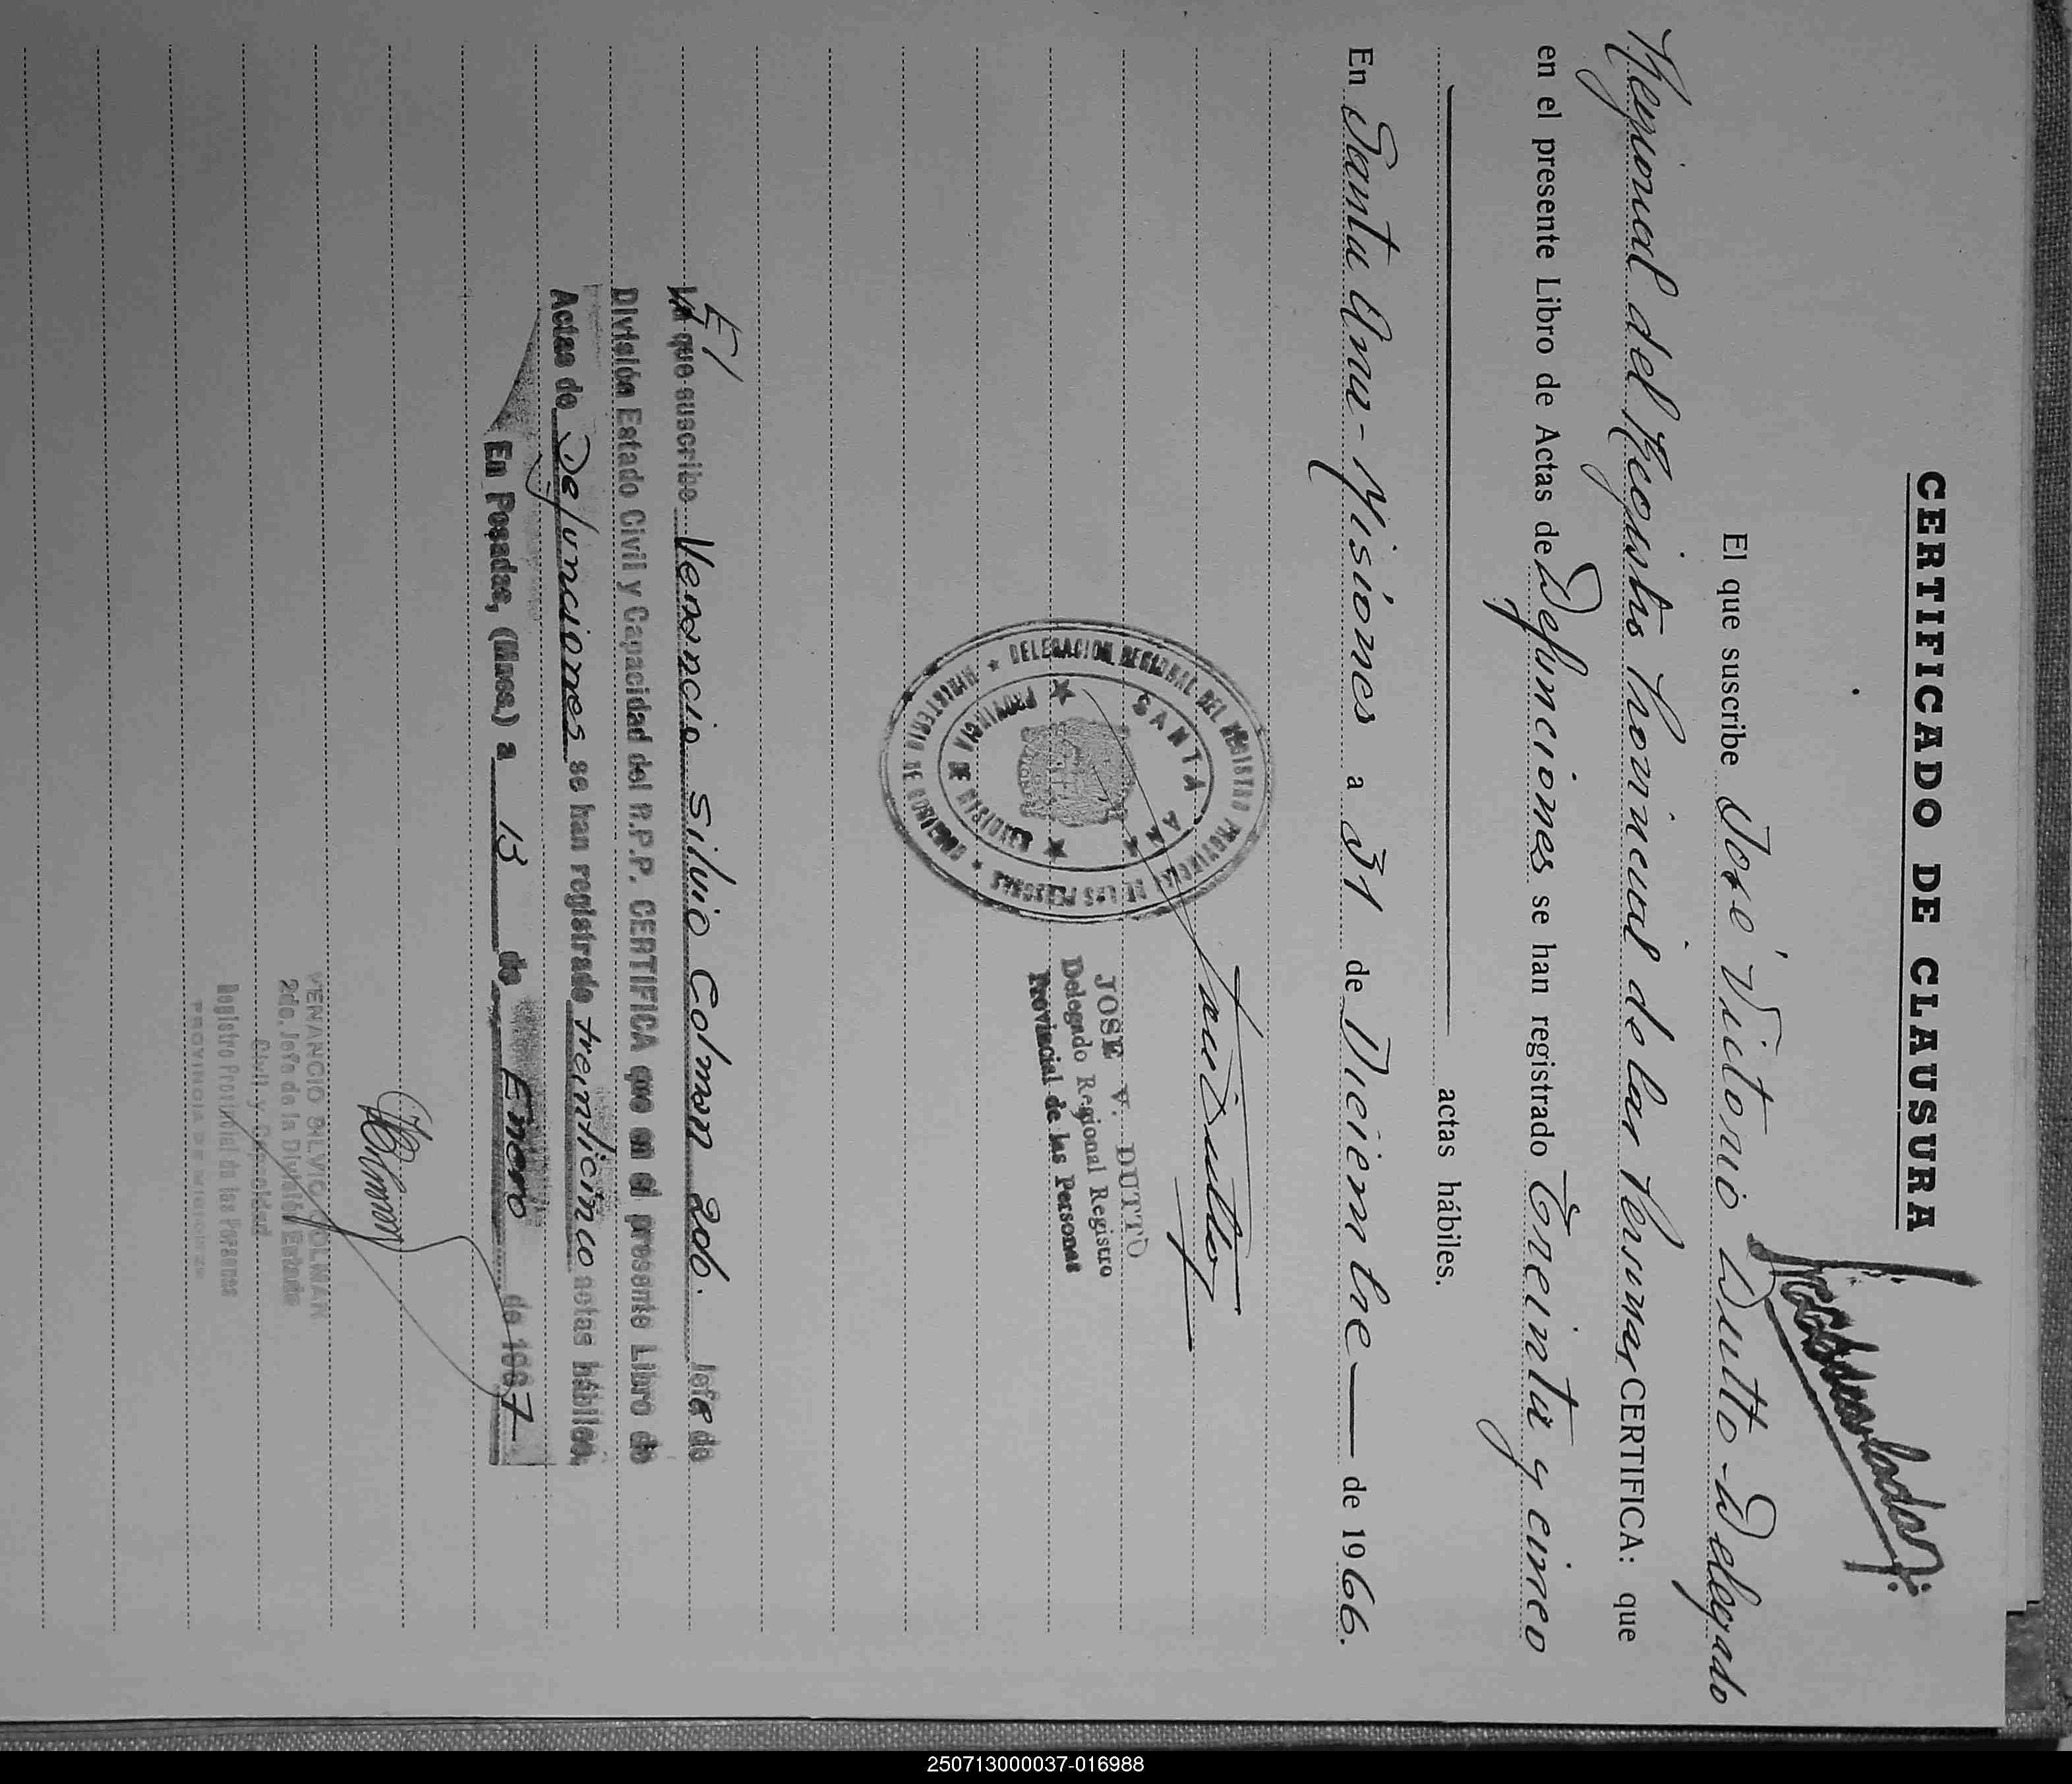 CERTIFICADO DE CLAUSURA
El que suscribe José Victorio Dutto - Delegado
Regional del Registro Provincial de las Personas, CERTIFICA: que
en el presente Libro de Actas de Defunciones se han registrado Treinta y cinco
actas hábiles.
En Santa Ana - Misiones a 31 de Diciembre de 1966.
DELEGACION REGIONAL DEL REGISTRO PROVINCIAL DE LAS PERSONAS
MINISTERIO DE GOBIERNO
SANTA ANA
PROVINCIA DE MISIONES
JOSE V. DUTTO
Delegado Regional Registro
Provincial de las Personas
El
que suscribe Venancio Silvio Colman 2do. Jefe de
División Estado Civil y Capacidad del R.P.P. CERTIFICA que en el presente Libro de
Actas de Defunciones se han registrado treinticinco actas hábiles.
En Posadas, (Mnes.) a 13 de Enero de 1967
VENANCIO SILVIO COLMAN
2do. Jefe de la División Estado
Civil y Capacidad
Registro Provincial de las Personas
PROVINCIA DE MISIONES
250713000037-016988